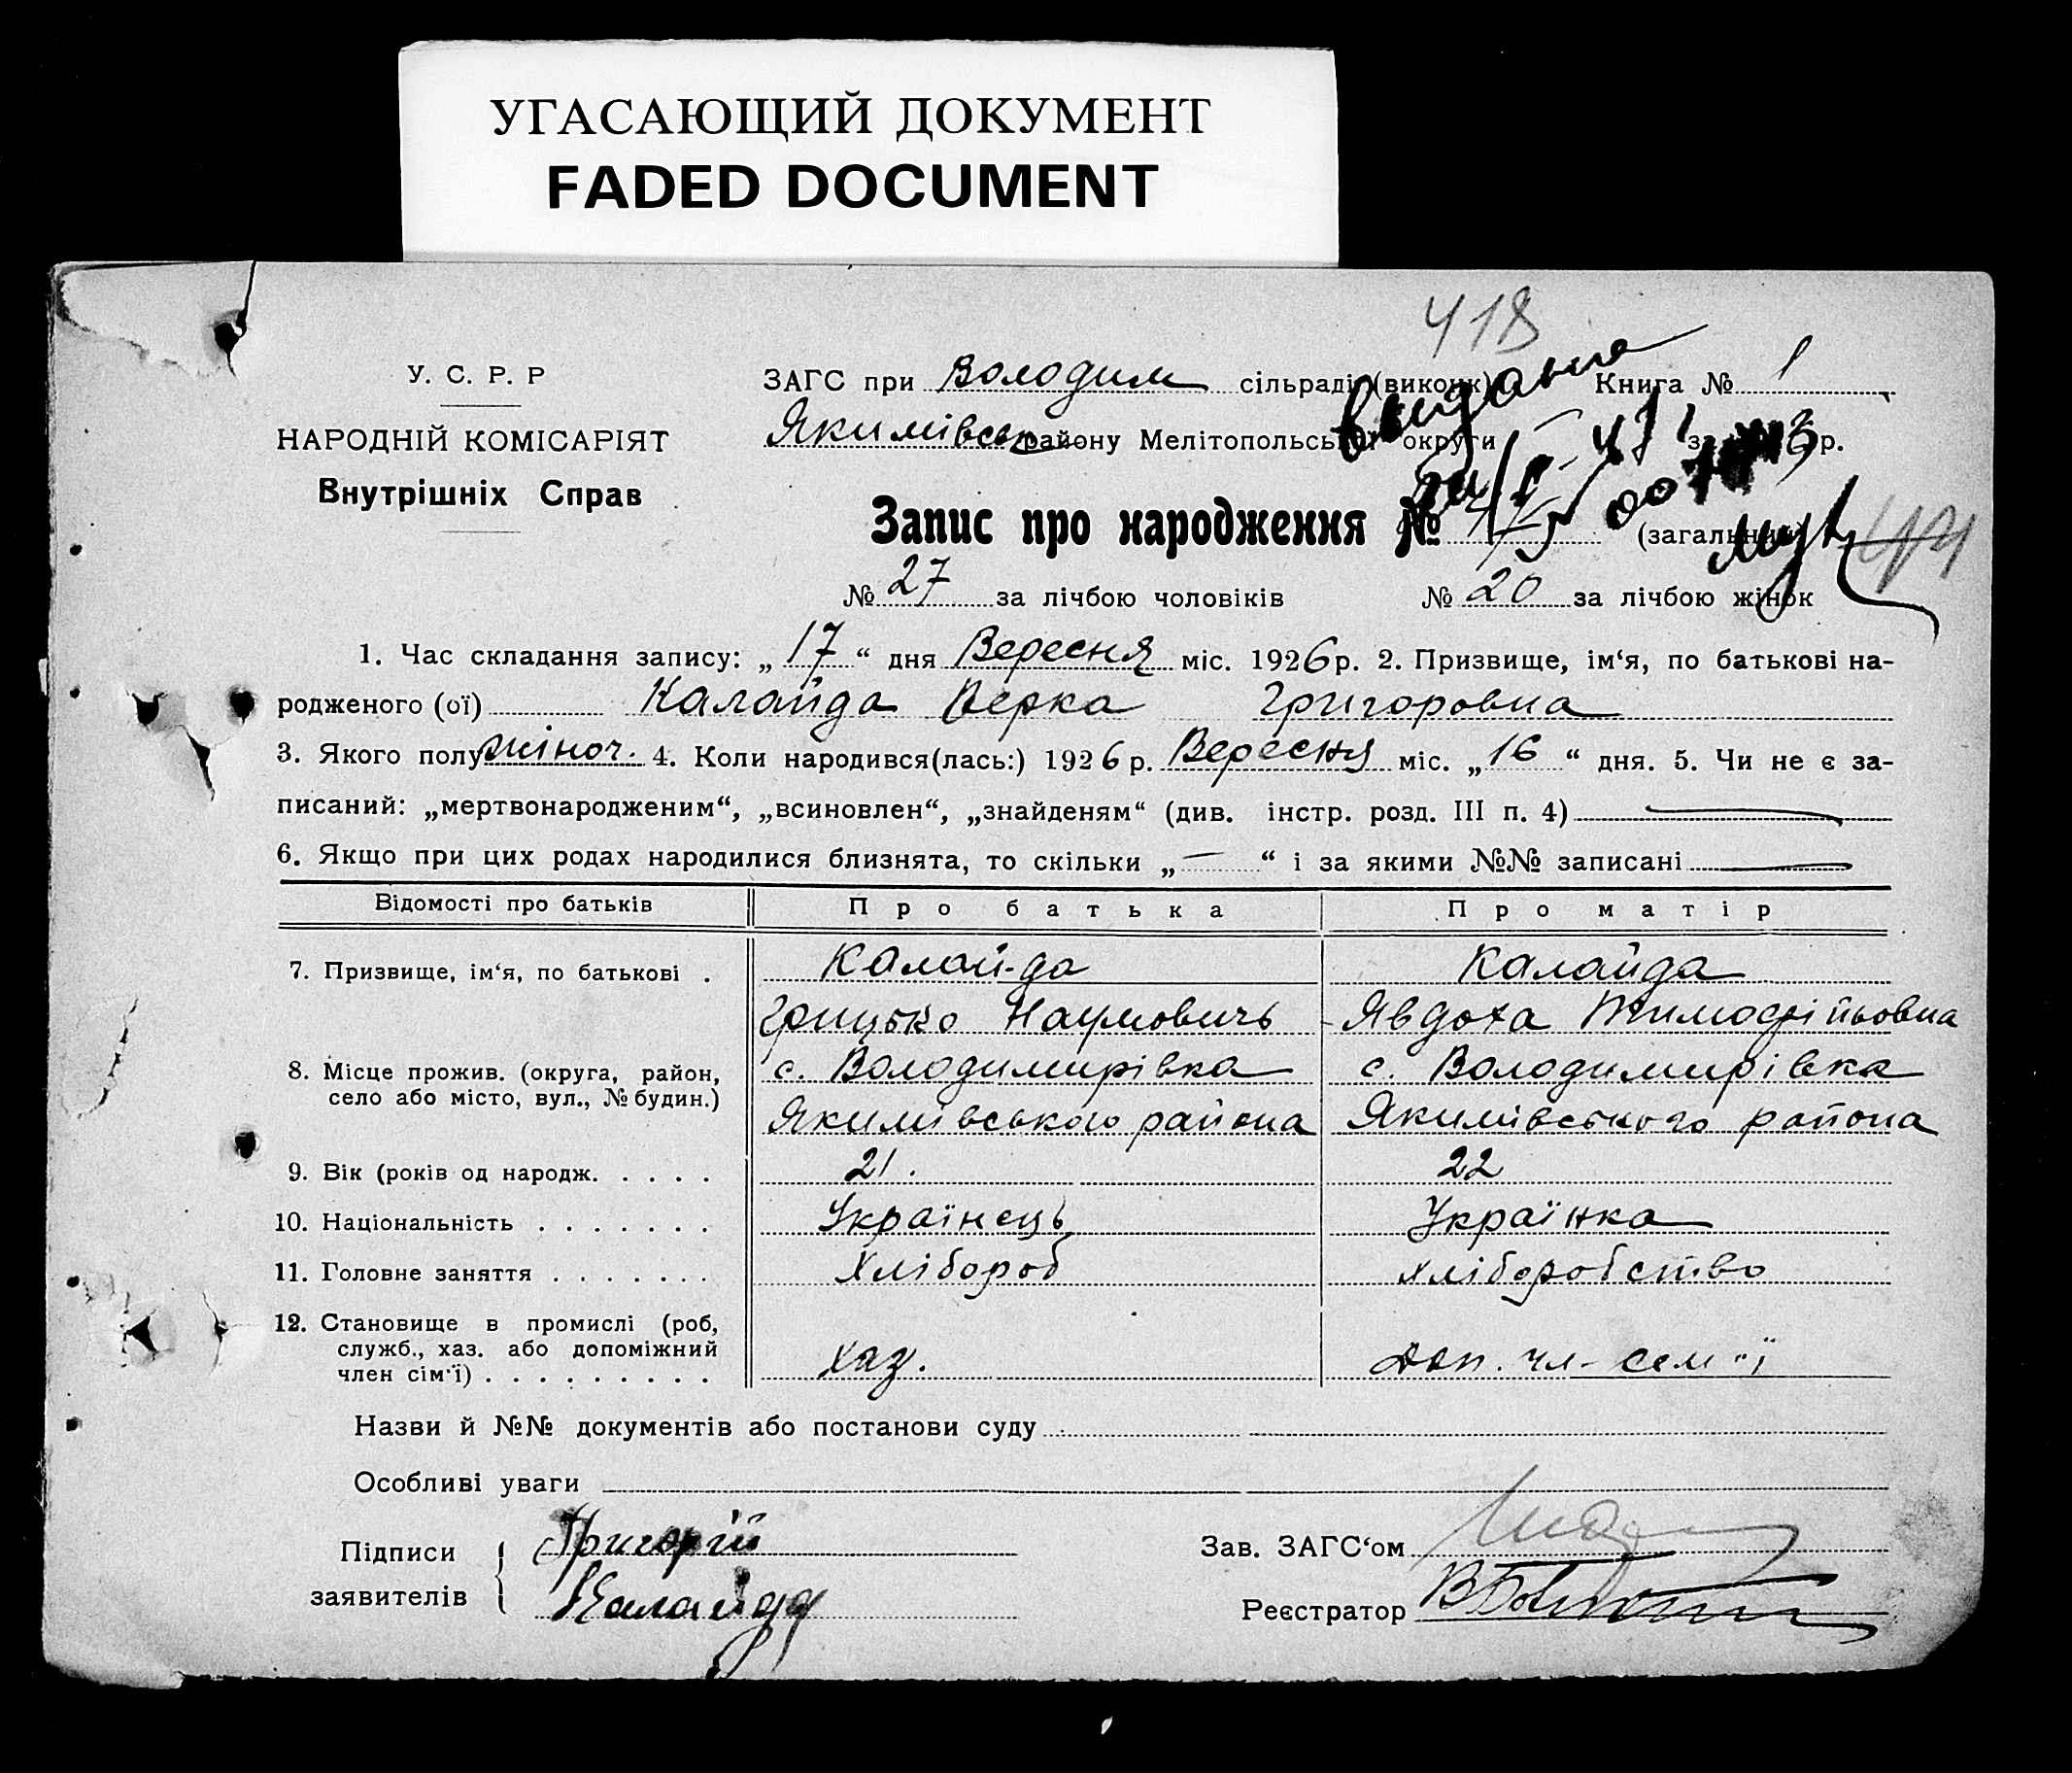 УГАСАЮЩИЙ ДОКУМЕНТ
FADED DOCUMENT
418
У. С. Р. Р
НАРОДНІЙ КОМІСАРІЯТ
Внутрішніх Справ
ЗАГС при Володим сільраді (виконк) Книга № 1
Якимівськ району Мелітопольської округи за р.
видано
Запис про народження № 47 (загальний)
№ 27 за лічбою чоловіків № 20 за лічбою жінок
1. Час складання запису: „17“ дня Вересня міс. 1926р. 2. Призвище, ім‘я, по батькові на-
родженого (ої) Калайда Верка Григоровна
3. Якого полу жіноч. 4. Коли народився(лась:) 1926р. Вересня міс. „16“ дня. 5. Чи не є за-
писаний: „мертвонародженим“, „всиновлен“, „знайденям“ (див. інстр. розд. III п. 4) —
6. Якщо при цих родах народилися близнята, то скільки „—“ і за якими №№ записані —
Відомості про батьків Про батька Про матір
7. Призвище, ім‘я, по батькові . Калай-да Калайда
Грицько Наумовичь Явдоха Тимофійовна
8. Місце прожив. (округа, район, с. Володимирівка с. Володимирівка
село або місто, вул., № будин.) Якимівського района Якимівського района
9. Вік (років од народж. . . . . 21. 22
10. Національність . . . . . . . Українець Українка
11. Головне заняття . . . . . . . Хлібороб хліборобство
12. Становище в промислі (роб,
служб., хаз. або допоміжний хаз. доп. чл- сем"ї
член сім‘ї) . . . . . . . . .
Назви й №№ документів або постанови суду
Особливі уваги
Підписи Григорій Зав. ЗАГС‘ом
заявителів Калайда Реєстратор